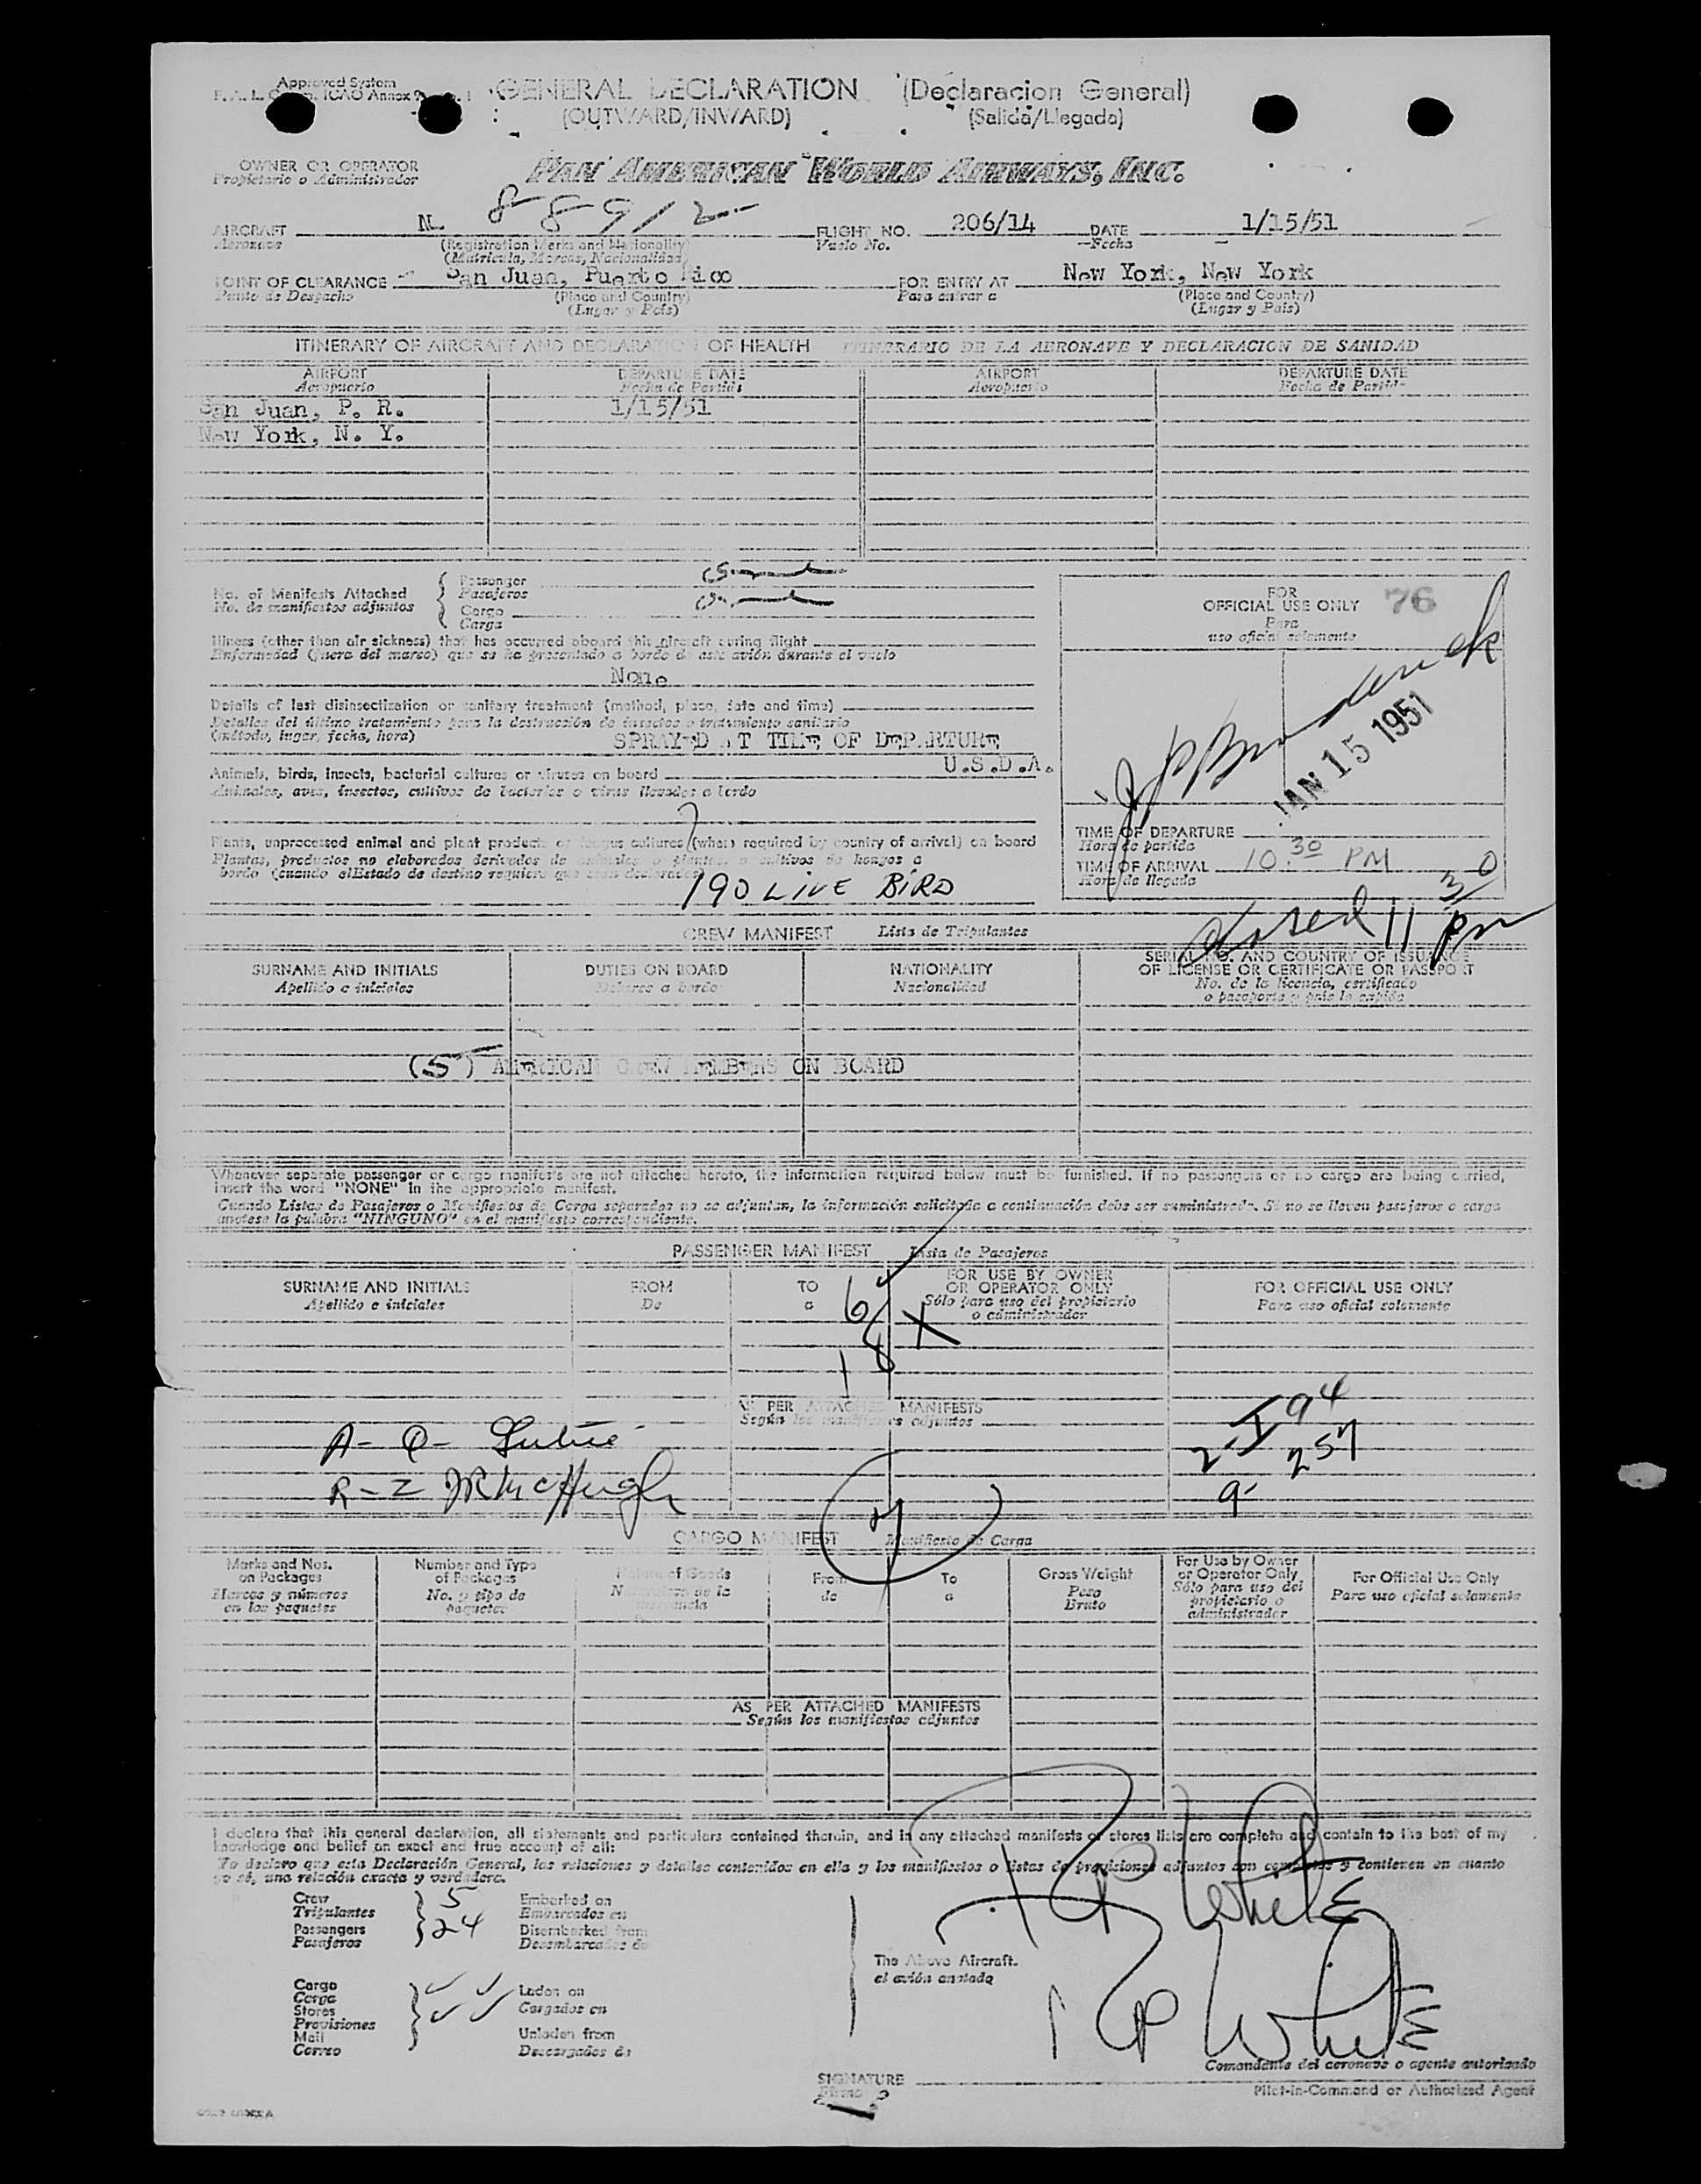 Approved System
GENERAL DECLARATION (Declaracion General)
(OUTWARD/INWARD) (Salida/Llegada)
OWNER OR OPERATOR
Propietario o Administrador
PAN AMERICAN WORLD AIRWAYS, INC.
AIRCRAFT N 88912 FLIGHT NO. 206/14 DATE 1/15/51
Aeronave (Registration Marks and Nationality) Vuelo No. Fecha
(Matricula, Marcas, Nacionalidad)
POINT OF CLEARANCE San Juan, Puerto Rico FOR ENTRY AT New York, New York
Punto de Despacho (Place and Country) Para entrar a (Place and Country)
(Lugar y País) (Lugar y País)
ITINERARY OF AIRCRAFT AND DECLARATION OF HEALTH ITINERARIO DE LA AERONAVE Y DECLARACION DE SANIDAD
AIRPORT DEPARTURE DATE AIRPORT DEPARTURE DATE
Aeropuerto Fecha de Partida Aeropuerto Fecha de Partida
San Juan, P. R. 1/15/51
New York, N. Y.
No. of Manifests Attached Passenger
No. de manifiestos adjuntos Pasajeros
Cargo
Carga
FOR
OFFICIAL USE ONLY 76
Para
uso oficial solamente
Illness (other than air sickness) that has occurred aboard this aircraft during flight
Enfermedad (fuera del mareo) que se ha presentado a bordo de este avión durante el vuelo
None
Details of last disinsectization or sanitary treatment (method, place, date and time)
Detalles del último tratamiento para la destrucción de insectos o tratamiento sanitario
(método, lugar, fecha, hora)
SPRAYED AT TIME OF DEPARTURE
U.S.D.A.
JAN 15 1951
Animals, birds, insects, bacterial cultures or viruses on board
Animales, aves, insectos, cultivos de bacterias o virus llevados a bordo
Plants, unprocessed animal and plant products or fungus cultures (where required by country of arrival) on board
Plantas, productos no elaborados derivados de animales o plantas, o cultivos de hongos a
bordo (cuando el Estado de destino requiere que sean declarados)
190 LIVE BIRD
TIME OF DEPARTURE
Hora de partida
TIME OF ARRIVAL 10:30 PM
Hora de llegada
closed 11 30 pm
CREW MANIFEST Lista de Tripulantes
SURNAME AND INITIALS DUTIES ON BOARD NATIONALITY SERIAL NO. AND COUNTRY OF ISSUANCE
OF LICENSE OR CERTIFICATE OR PASSPORT
Apellido e iniciales Deberes a bordo Nacionalidad No. de la licencia, certificado
o pasaporte y país lo expide
(5) AMERICAN CREW MEMBERS ON BOARD
Whenever separate passenger or cargo manifests are not attached hereto, the information required below must be furnished. If no passengers or no cargo are being carried,
insert the word "NONE" in the appropriate manifest.
Cuando Listas de Pasajeros o Manifiestos de Carga separados no se adjuntan, la información solicitada a continuación debe ser suministrada. Si no se llevan pasajeros o carga
anótese la palabra "NINGUNO" en el manifiesto correspondiente.
PASSENGER MANIFEST Lista de Pasajeros
SURNAME AND INITIALS FROM TO FOR USE BY OWNER
OR OPERATOR ONLY FOR OFFICIAL USE ONLY
Apellido e iniciales De a Sólo para uso del propietario
o administrador Para uso oficial solamente
AS PER ATTACHED MANIFESTS
Según los manifiestos adjuntos
R-2 JR McHugh
257
9-
CARGO MANIFEST Manifiesto de Carga
Marks and Nos.
on Packages
Marcas y números
en los paquetes
Number and Type
of Packages
No. y tipo de
paquetes
Nature of Goods
Naturaleza de la
mercancía
From
de
To
a
Gross Weight
Peso
Bruto
For Use by Owner
or Operator Only
Sólo para uso del
propietario o
administrador
For Official Use Only
Para uso oficial solamente
AS PER ATTACHED MANIFESTS
Según los manifiestos adjuntos
I declare that this general declaration, all statements and particulars contained therein, and in any attached manifests or stores lists are complete and contain to the best of my
knowledge and belief an exact and true account of all:
Yo declaro que esta Declaración General, las relaciones y detalles contenidos en ella y los manifiestos o listas de provisiones adjuntos son completos y contienen en cuanto
yo sé, una relación exacta y verdadera.
Crew 5 Embarked on
Tripulantes Embarcados en
Passengers 24 Disembarked from
Pasajeros Desembarcados de
The Above Aircraft.
el avión anotado
Cargo
Carga Laden on
Stores Cargados en
Provisiones
Mail Unladen from
Correo Descargados de
RP White
RP White
Comandante del aeronave o agente autorizado
SIGNATURE
Firma
Pilot-in-Command or Authorized Agent